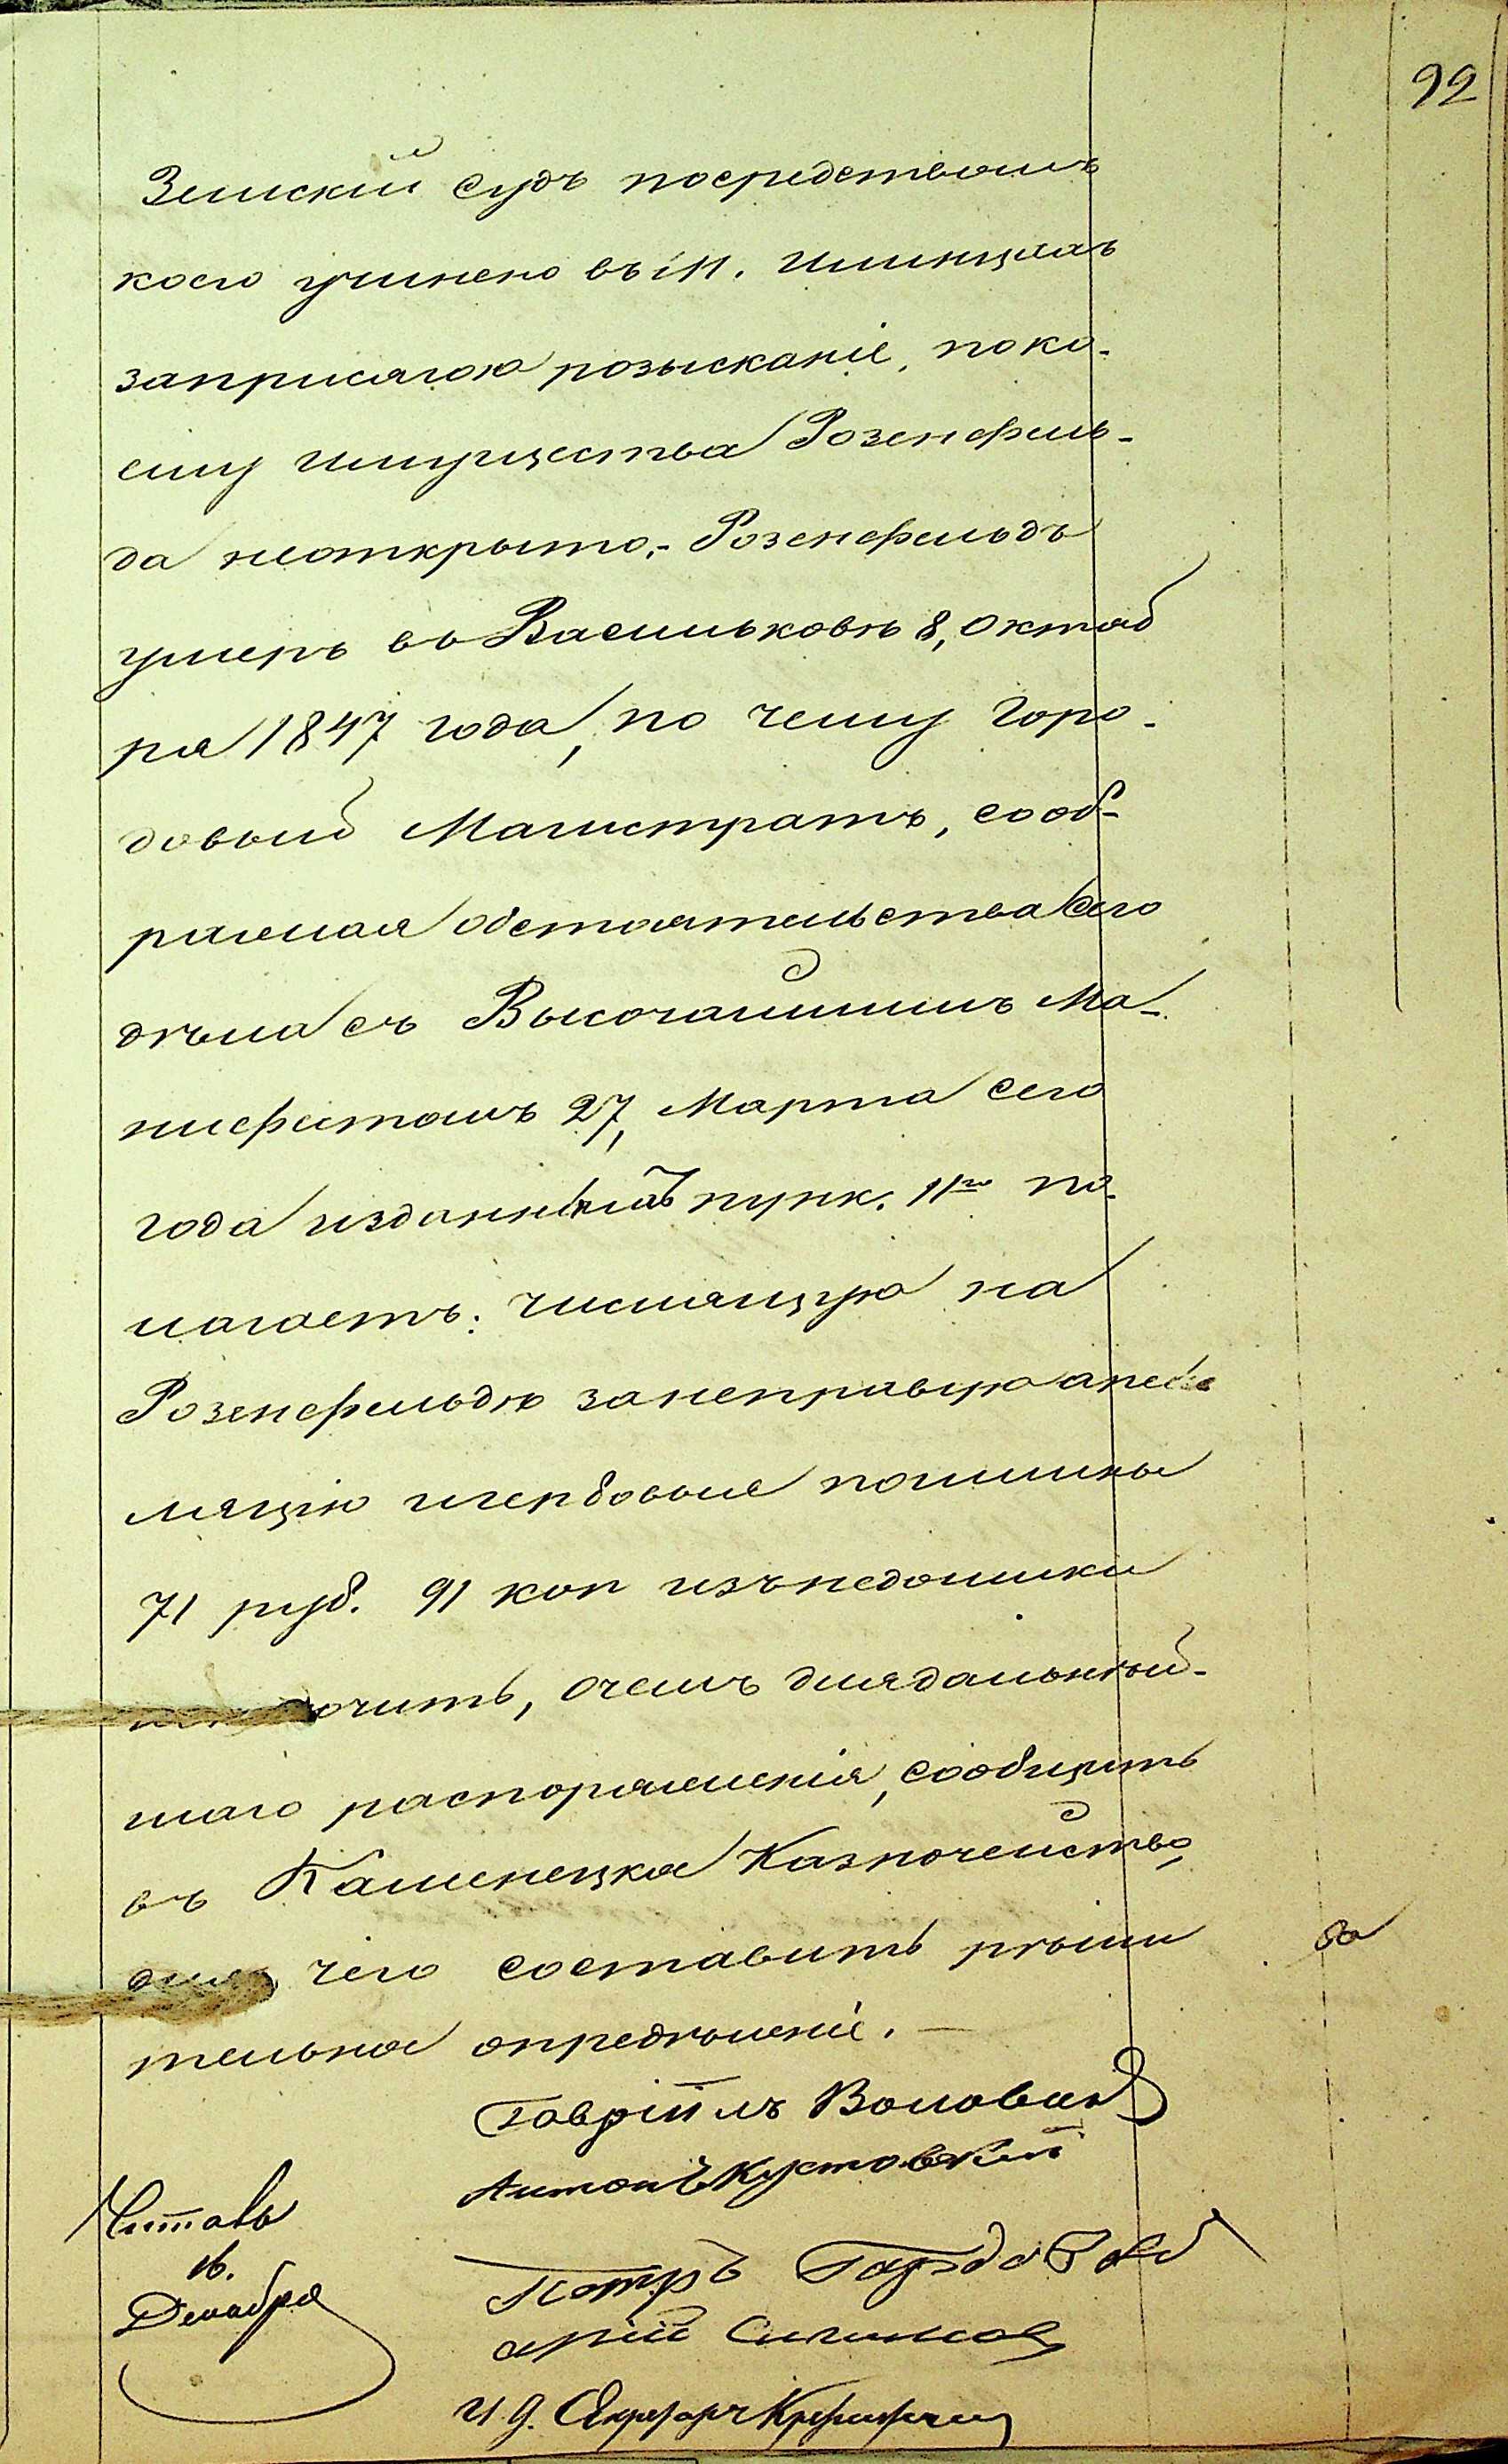 92
Земскій судъ посредствомъ
коего учинено въ м. Шминцахъ
заприсягою розысканіе, поко-
ему имущества Розенфель-
да неоткрыто,- Розенфельдъ
умеръ въ Васильковѣ 8, октяб
ря 1847 года, по чему Горо-
довый Магистратъ, сооб-
ражая обстоятельства сего
дѣла съ Высочайшимъ Ма-
нифестомъ 27, Марта сего
года изданнымъ пунк. 11го по-
лагаетъ: числящуюся на
Розенфельдѣ занеправую апел
ляцію игербовыя пошлины
71 руб. 91 коп изънедоимки
ючить, очемъ длядальнѣй-
шаго распоряженія, сообщить
въ Каменецкое Казначейство,
для чего составить рѣши
тельное опредѣленіе. —
Гавріилъ Воловик
Антонъ Кустовскій
Петръ
И. д. Секретарь
Читалъ
16.
Декабря